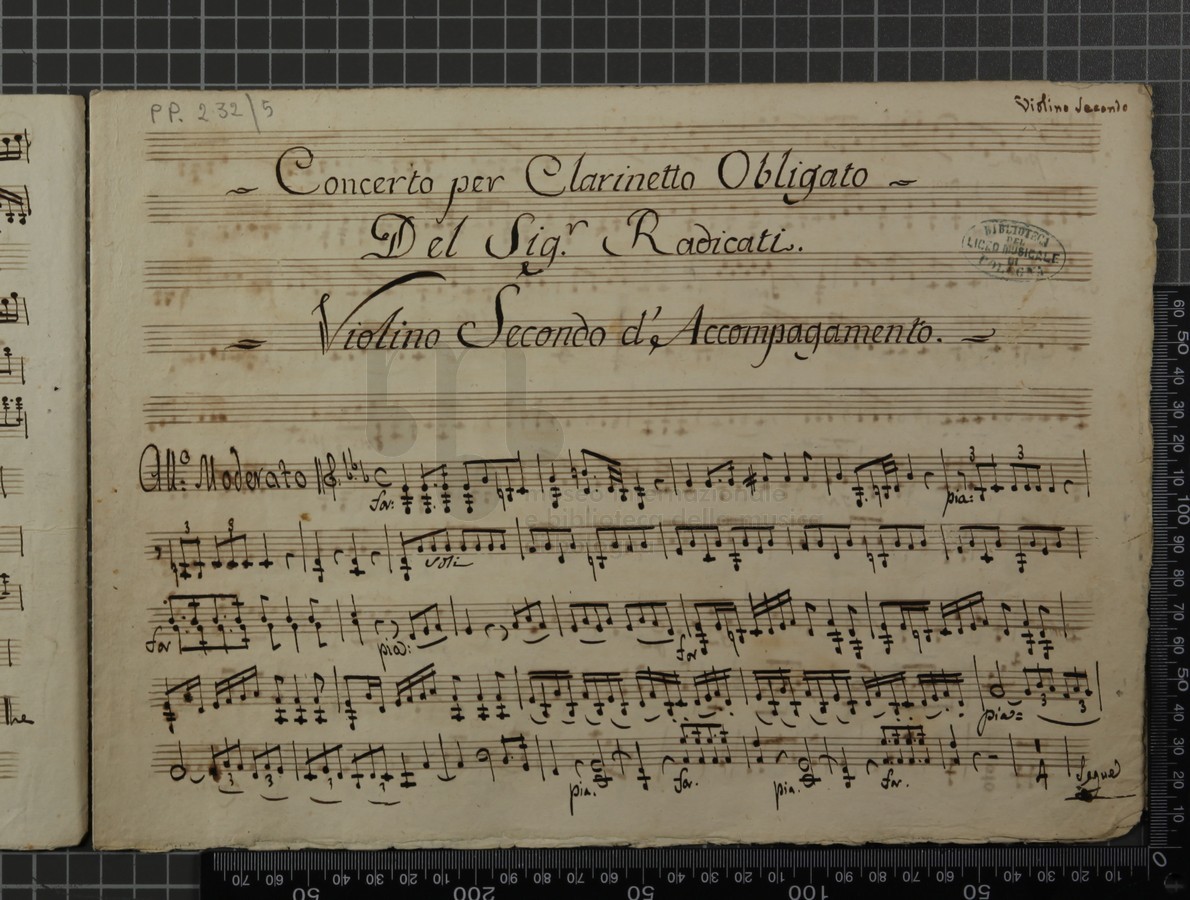 PP. 232/5
Violino Secondo
Concerto per Clarinetto Obligato
Del Sigr. Radicati.
Violino Secondo d'Accompagamento.
BIBLIOTECA
DEL
LICEO MUSICALE
DI
BOLOGNA
All.o Moderato
for:
pia:
3 3
museo internazionale
e biblioteca della musica
3 3
soli
for
pia:
for
pia:
3 3
3 3 3 3
pia.
for.
pia.
for.
4
Segue